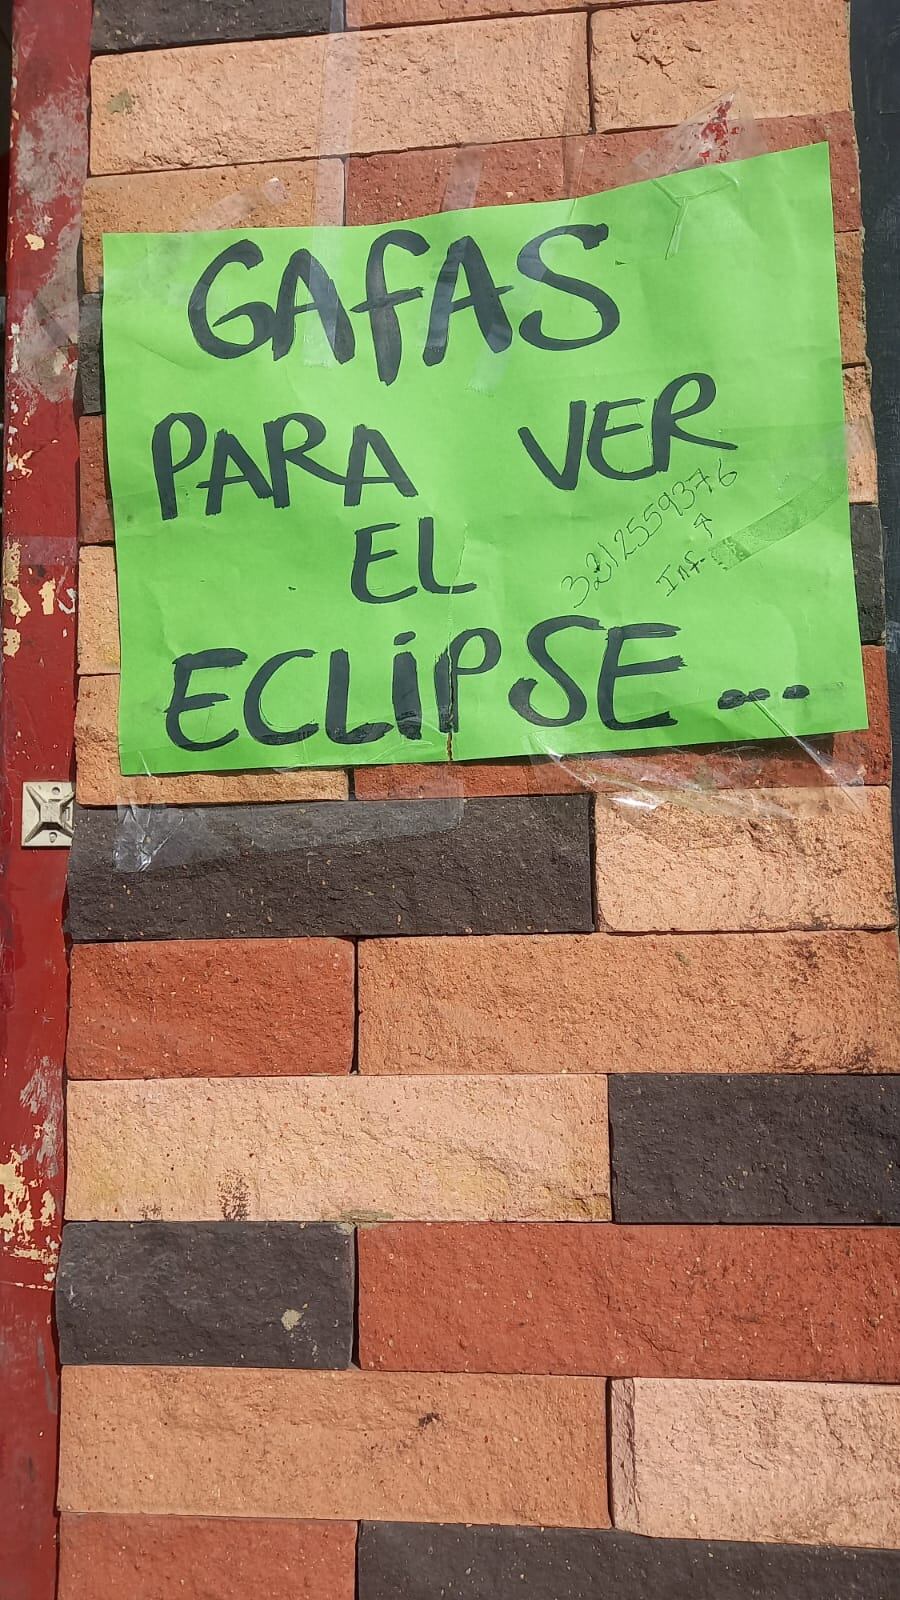 GAfAS
PARA VER
EL
3212559376
Inf.
ECLiPSE...